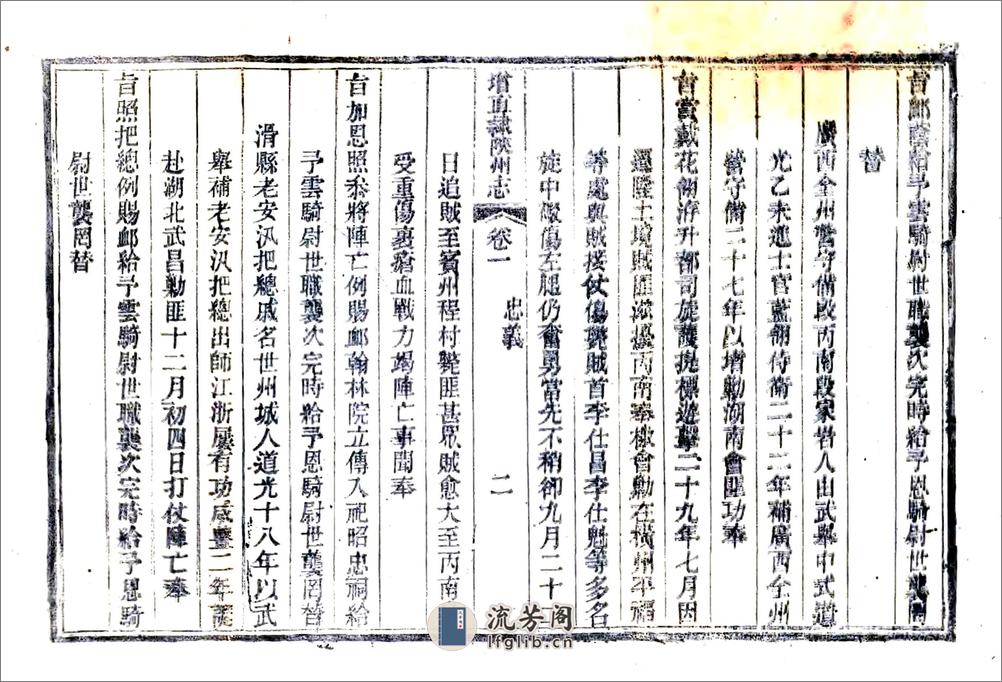 旨䘏廕給予雲騎尉世職襲次完時給予恩騎尉世襲罔
替
廣西全州營守備段丙南段家岩人由武舉中式道
光乙未進士官藍翎侍衛二十二年補廣西全州
營守備二十七年以堵勦湖南會匪功奉
旨賞戴花翎洊升都司旋護撫標遊擊二十九年七月因
遷隆土境賊匪滋擾丙南奉檄會勦在橫州平福
等處與賊接仗傷斃賊首李仕昌李仕魁等多名
旋中礮傷左腿仍奮勇當先不稍卻九月二十
增直隸陝州志
卷一
忠義
二
日追賊至賓州程村斃匪甚眾賊愈大至丙南
受重傷裹瘡血戰力竭陣亡事聞奉
旨加恩照叅將陣亡例賜䘏翰林院立傳入祀昭忠祠給
予雲騎尉世職襲次完時給予恩騎尉世襲罔替
滑縣老安汛把總戚名世州城人道光十八年以武
舉補老安汛把總出師江浙屢有功咸豐二年調
赴湖北武昌勦匪十二月初四日打仗陣亡奉
旨照把總例賜䘏給予雲騎尉世職襲次完時給予恩騎
尉世襲罔替
流芳阁
lfglib.cn